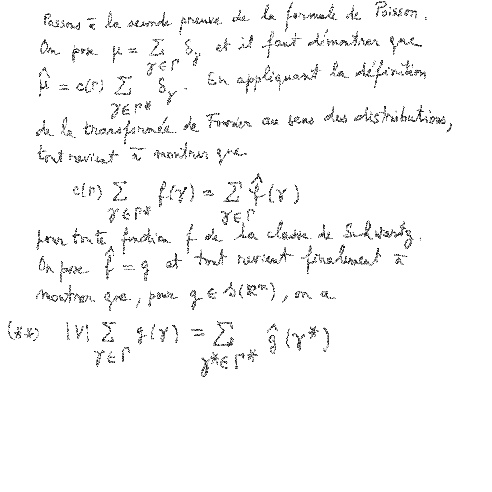 Passons à la seconde preuve de la formule de Poisson.
On pose μ = Σ_{γ∈Γ} δ_γ et il faut démontrer que
μ̂ = c(Γ) Σ_{γ∈Γ*} δ_γ. En appliquant la définition
de la transformée de Fourier au sens des distributions,
tout revient à montrer que
c(Γ) Σ_{γ∈Γ*} f(γ) = Σ_{γ∈Γ} f̂(γ)
pour toute fonction f de la classe de Schwartz.
On pose f̂ = g et tout revient finalement à
montrer que, pour g ∈ S(ℝⁿ), on a
(**) |V| Σ_{γ∈Γ} g(γ) = Σ_{γ*∈Γ*} ĝ(γ*)